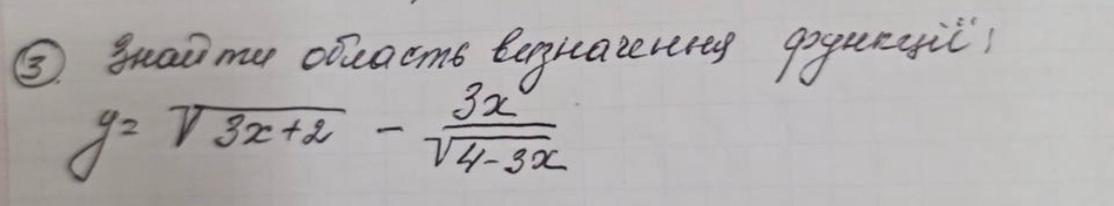 ③. Знайти область визначення функції:
y = √(3x+2) - 3x/√(4-3x)